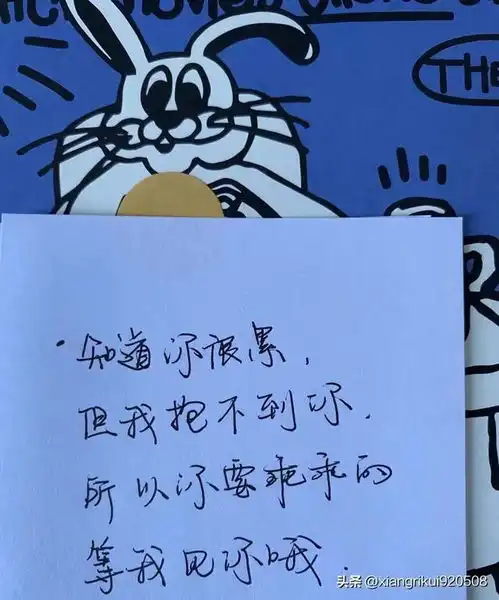 THE
·知道你很累,
但我抱不到你.
所以你要乖乖的
等我见你哦.
头条 @xiangrikui920508